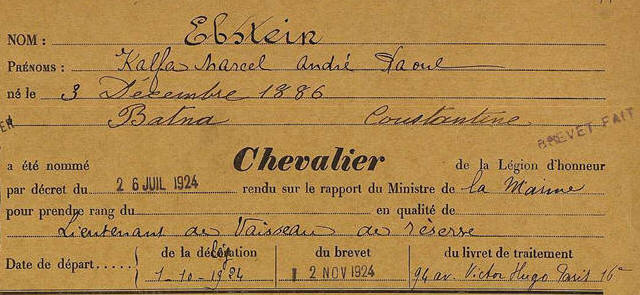 NOM : Ebstein
PRÉNOMS : Kalfa Marcel André Raoul
né le 3 Décembre 1886
Batna Constantine
BREVET FAIT
a été nommé Chevalier de la Légion d'honneur
par décret du 26 JUIL 1924 rendu sur le rapport du Ministre de la Marine
pour prendre rang du en qualité de
Lieutenant de Vaisseau de réserve
Date de départ de la décoration du brevet du livret de traitement
1-10- 2 NOV 1924 94 av. Victor Hugo Paris 16e